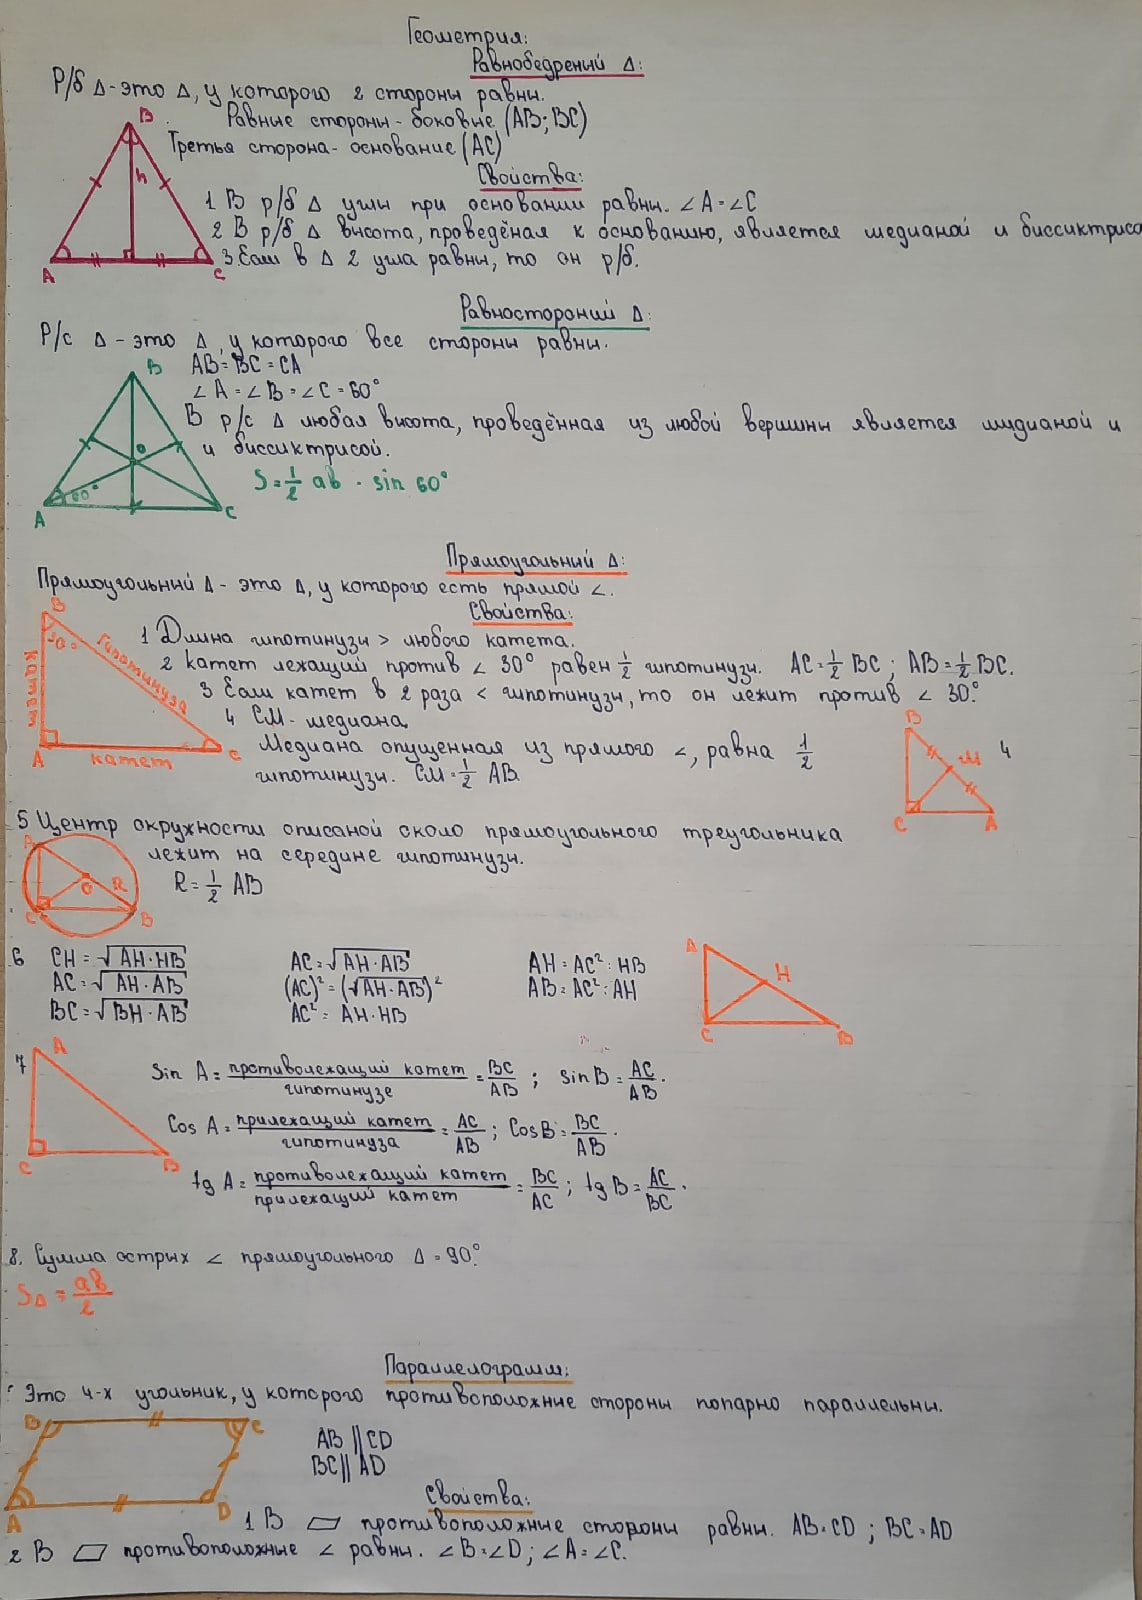 Геометрия:
Равнобедреный Δ:
Р/б Δ - это Δ, у которого 2 стороны равны.
Равные стороны - боковые (AB; BC)
Третья сторона - основание (AC)
Свойства:
1 В р/б Δ углы при основании равны. ∠A = ∠C
2 В р/б Δ высота, проведёная к основанию, является медианой и биссиктриса
3. Если в Δ 2 угла равны, то он р/б.
B
h
A
C
Равностороний Δ:
Р/с Δ - это Δ, у которого все стороны равны.
AB = BC = CA
∠A = ∠B = ∠C = 60°
В р/с Δ любая высота, проведённая из любой вершины является мидианой и
и биссиктрисой.
S = 1/2 ab · sin 60°
B
O
60°
A
C
Прямоугольный Δ:
Прямоугольный Δ - это Δ, у которого есть прямой ∠.
Свойства:
1 Длина гипотинузы > любого катета.
2 Катет лежащий против ∠ 30° равен 1/2 гипотинузы. AC = 1/2 BC ; AB = 1/2 BC.
3 Если катет в 2 раза < гипотинузы, то он лежит против ∠ 30°.
4 CM - медиана
Медиана опущенная из прямого ∠, равна 1/2
гипотинузы. CM = 1/2 AB
B
30°
гипотинуза
катет
A
катет
C
B
M
4
C
A
5 Центр окружности описаной около прямоугольного треугольника
лежит на середине гипотинузы.
R = 1/2 AB
A
O
R
C
B
6 CH = √AH·HB AC = √AH·AB AH = AC² : HB
AC = √AH·AB (AC)² = (√AH·AB)² AB = AC² : AH
BC = √BH·AB AC² = AH·HB
A
H
C
B
7 Sin A = противолежащий катет/гипотинузе = BC/AB ; sin B = AC/AB.
Cos A = прилежащий катет/гипотинуза = AC/AB ; Cos B = BC/AB.
tg A = противолежащий катет/прилежащий катет = BC/AC ; tg B = AC/BC.
A
C
B
8. Сумма острых ∠ прямоугольного Δ = 90°.
SΔ = ab/2
Параллелограмм:
Это 4-х угольник, у которого противоположные стороны попарно параллельны.
AB || CD
BC || AD
B
C
A
D
Свойства:
1 В ▱ противоположные стороны равны. AB = CD ; BC = AD
2 В ▱ противоположные ∠ равны. ∠B = ∠D ; ∠A = ∠C.